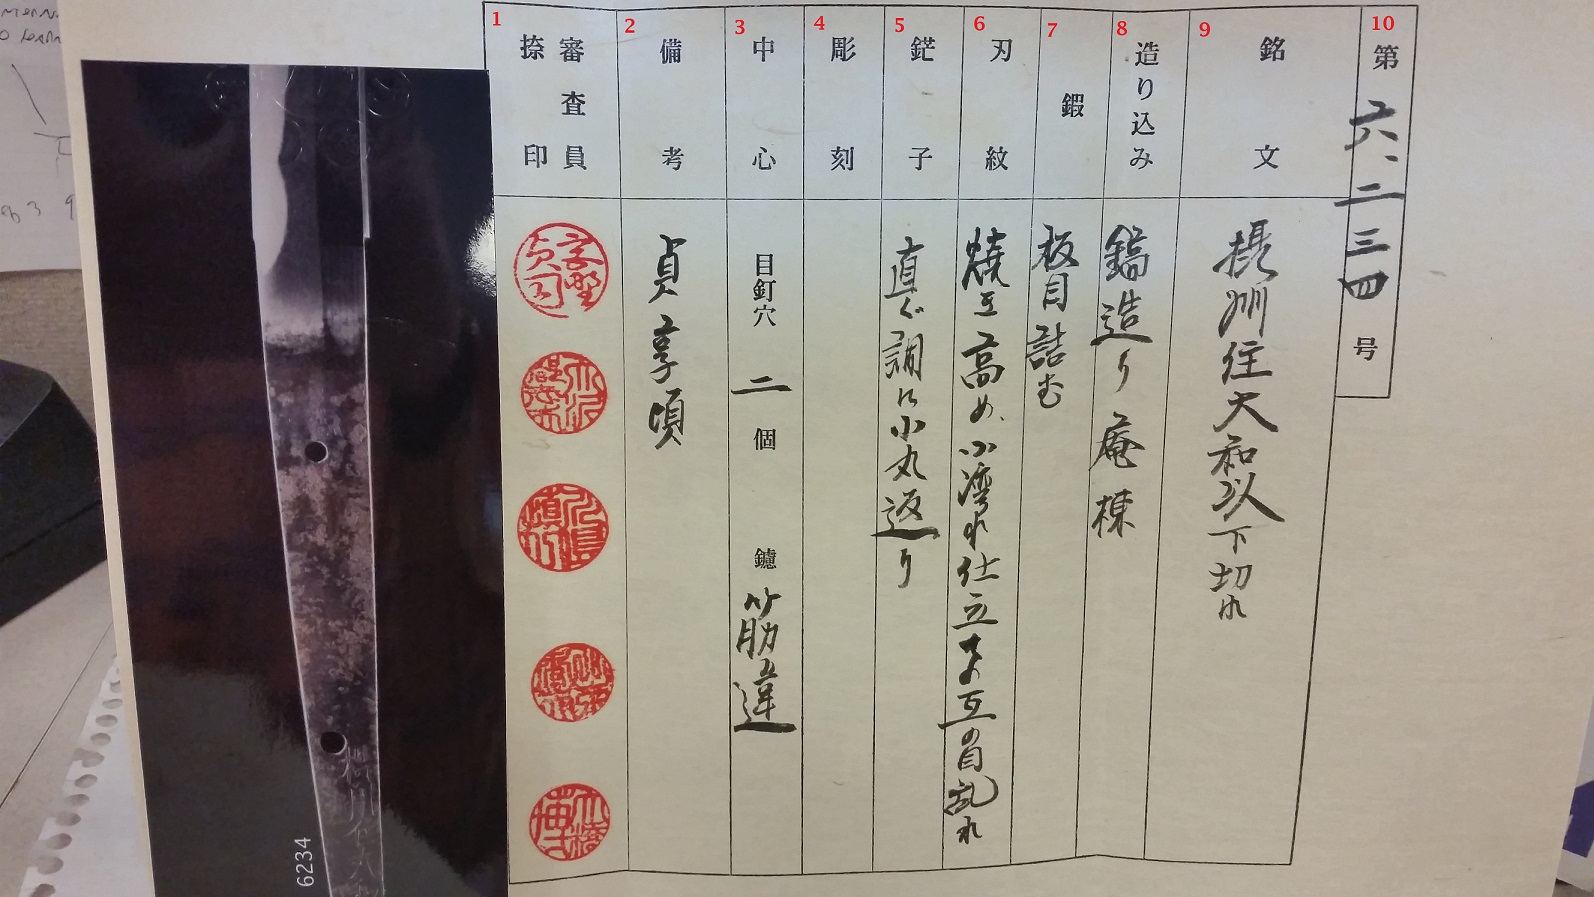 10
第六、二三四号
9
銘文
摂州住大和以下切れ
8
造り込み
鎬造り 庵棟
7
鍛
板目詰む
6
刃紋
焼き高め、小湾れ仕立ての互の目乱れ
5
鋩子
直ぐ調に小丸返り
4
彫刻
3
中心
目釘穴 二 個 鑢 筋違
2
備考
貞享頃
1
審査員
捺印
6234